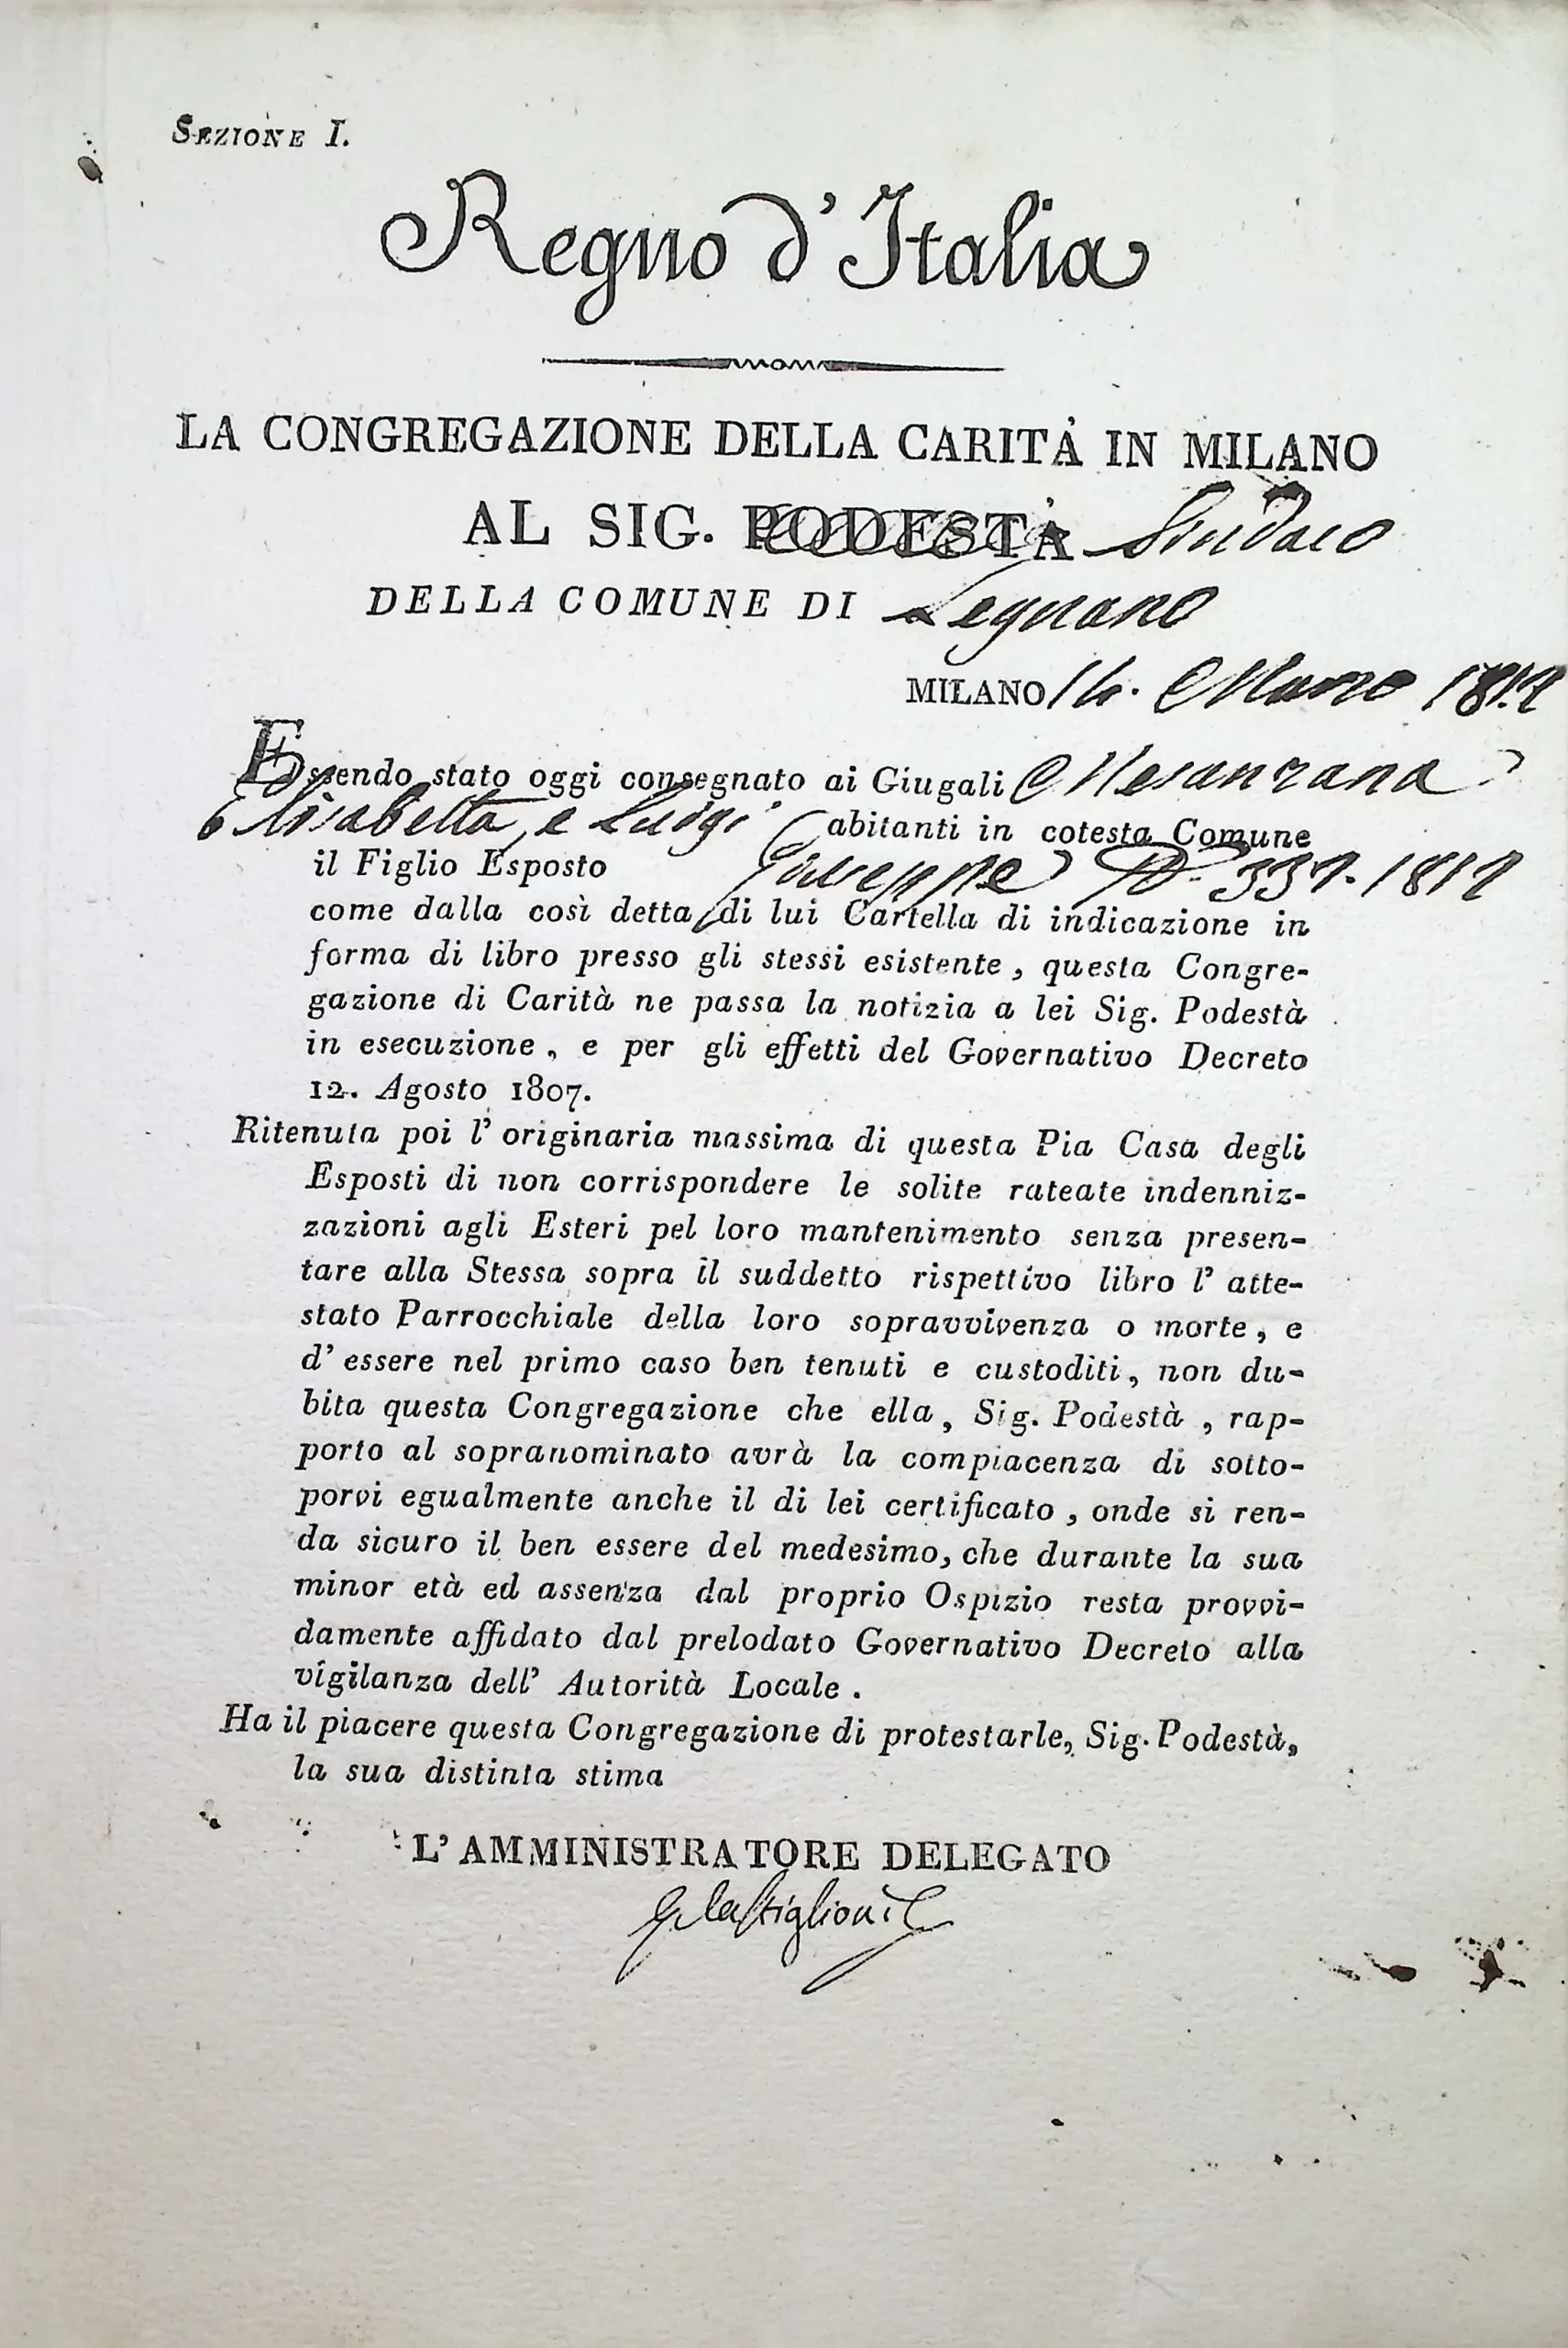 SEZIONE I.
Regno d'Italia
LA CONGREGAZIONE DELLA CARITÀ IN MILANO
AL SIG. PODESTÀ Sindaco
DELLA COMUNE DI Legnano
MILANO 14. Marzo 1812
Essendo stato oggi consegnato ai Giugali
Elisabetta, e Luigi abitanti in cotesta Comune
il Figlio Esposto Giuseppe N. 331. 1812
come dalla così detta di lui Cartella di indicazione in
forma di libro presso gli stessi esistente, questa Congre-
gazione di Carità ne passa la notizia a lei Sig. Podestà
in esecuzione, e per gli effetti del Governativo Decreto
12. Agosto 1807.
Ritenuta poi l'originaria massima di questa Pia Casa degli
Esposti di non corrispondere le solite rateate indenniz-
zazioni agli Esteri pel loro mantenimento senza presen-
tare alla Stessa sopra il suddetto rispettivo libro l'atte-
stato Parrocchiale della loro sopravvivenza o morte, e
d'essere nel primo caso ben tenuti e custoditi, non du-
bita questa Congregazione che ella, Sig. Podestà, rap-
porto al sopranominato avrà la compiacenza di sotto-
porvi egualmente anche il di lei certificato, onde si ren-
da sicuro il ben essere del medesimo, che durante la sua
minor età ed assenza dal proprio Ospizio resta provvi-
damente affidato dal prelodato Governativo Decreto alla
vigilanza dell' Autorità Locale.
Ha il piacere questa Congregazione di protestarle, Sig. Podestà,
la sua distinta stima
L'AMMINISTRATORE DELEGATO
Castiglioni